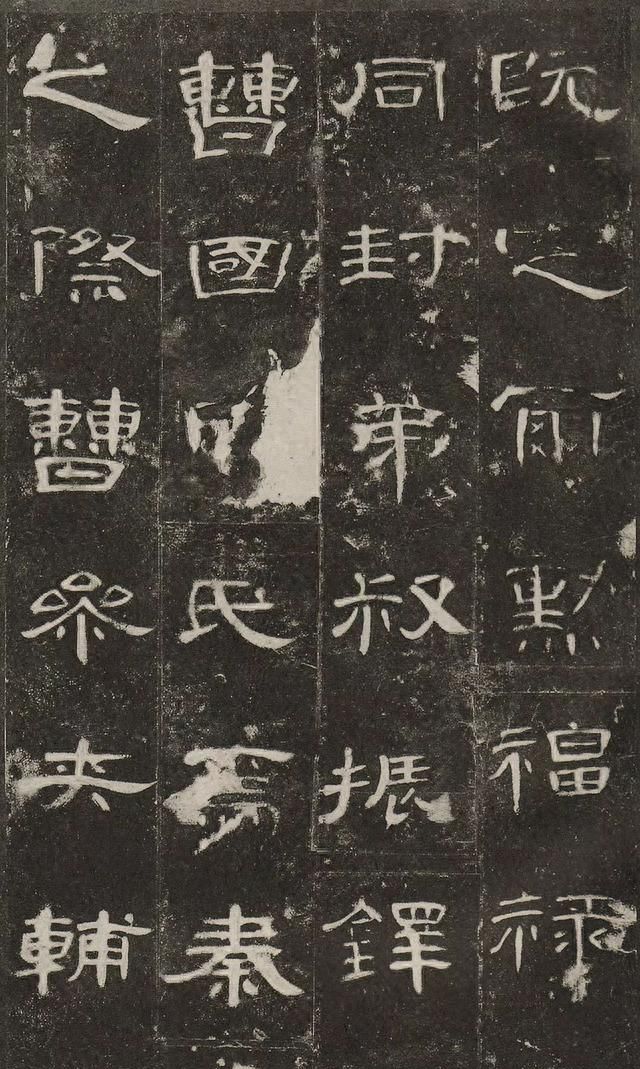 既定爾勳福祿
同封弟叔振鐸
曹國因氏焉秦
之際曹參夾輔